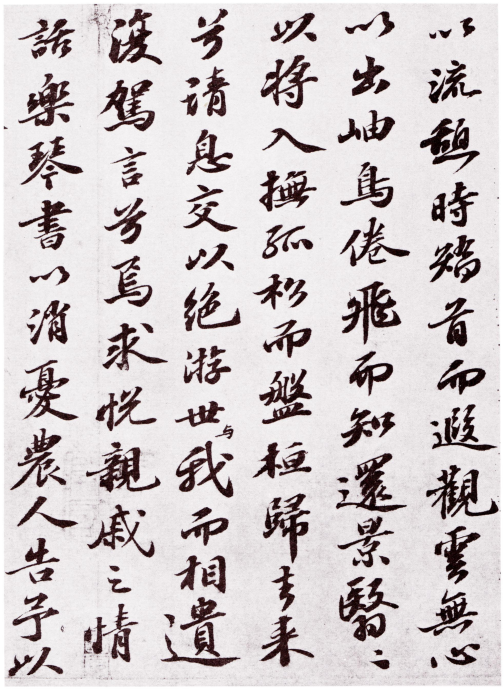 以流憩時矯首而遐觀雲無心
以出岫鳥倦飛而知還景翳〻
以将入撫孤松而盤桓歸去来
兮請息交以絕游世与我而相遺
復駕言兮焉求悅親戚之情
話樂琴書以消憂農人告予以